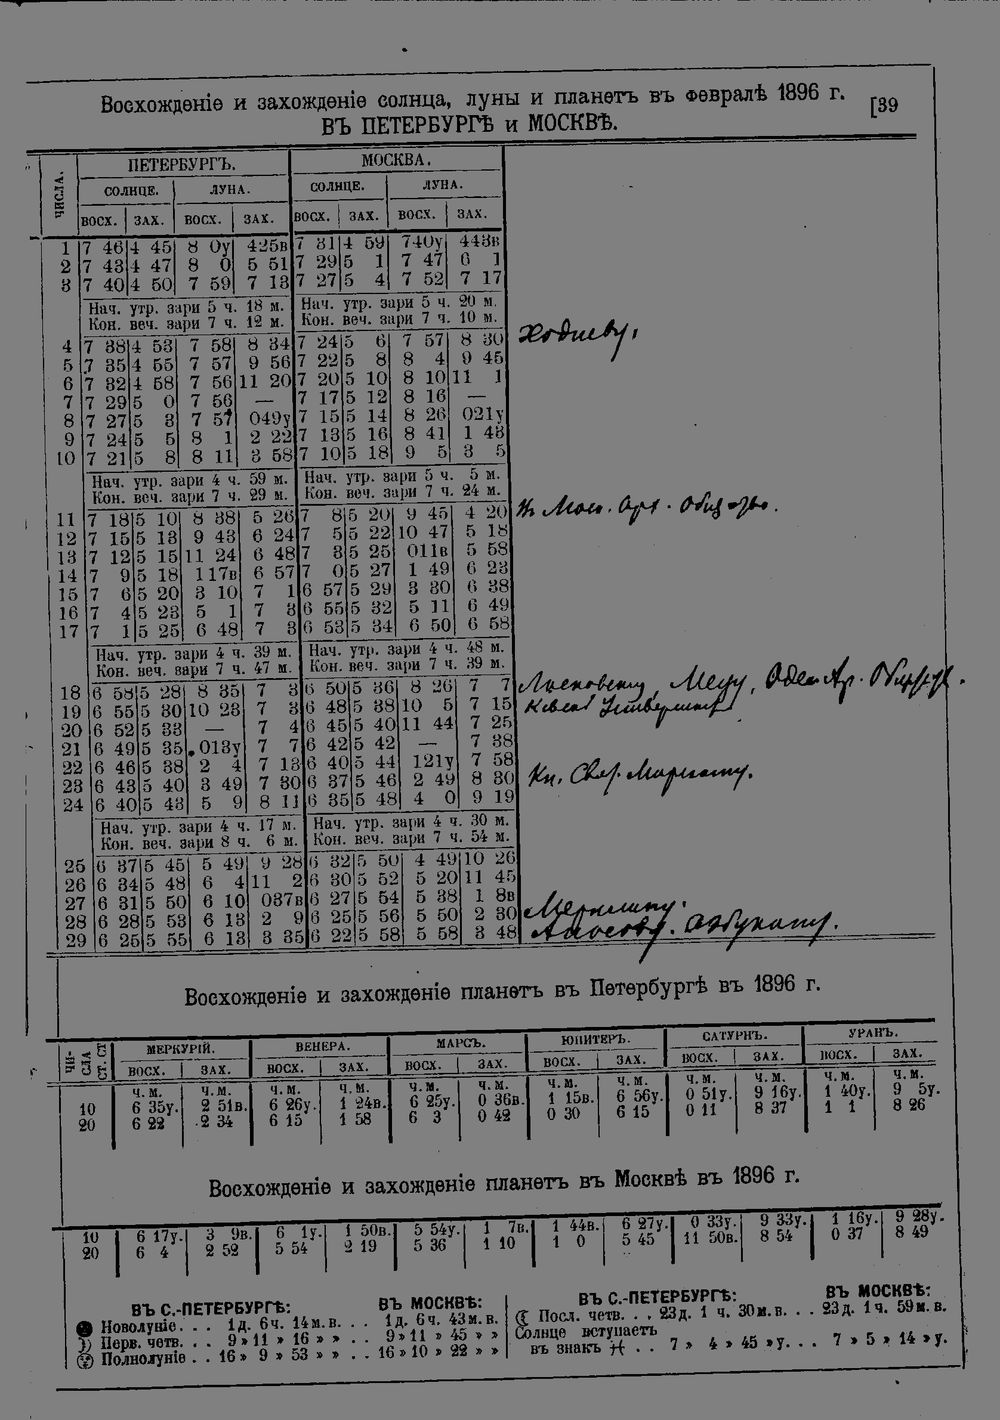 Восхожденіе и захожденіе солнца, луны и планетъ въ Февралѣ 1896 г.
[39
ВЪ ПЕТЕРБУРГѢ и МОСКВѢ.
ЧИСЛА. ПЕТЕРБУРГЪ. МОСКВА.
СОЛНЦЕ. ЛУНА. СОЛНЦЕ. ЛУНА.
ВОСХ. ЗАХ. ВОСХ. ЗАХ. ВОСХ. ЗАХ. ВОСХ. ЗАХ.
1 7 46 4 45 8 0у 425в 7 31 4 59 740у 443в
2 7 43 4 47 8 0 5 51 7 29 5 1 7 47 6 1
3 7 40 4 50 7 59 7 13 7 27 5 4 7 52 7 17
Нач. утр. зари 5 ч. 18 м. Нач. утр. зари 5 ч. 20 м.
Кон. веч. зари 7 ч. 12 м. Кон. веч. зари 7 ч. 10 м.
4 7 38 4 53 7 58 8 34 7 24 5 6 7 57 8 30
5 7 35 4 55 7 57 9 56 7 22 5 8 8 4 9 45
6 7 32 4 58 7 56 11 20 7 20 5 10 8 10 11 1
7 7 29 5 0 7 56 — 7 17 5 12 8 16 —
8 7 27 5 3 7 57 049у 7 15 5 14 8 26 021у
9 7 24 5 5 8 1 2 22 7 13 5 16 8 41 1 43
10 7 21 5 8 8 11 3 58 7 10 5 18 9 5 3 5
Нач. утр. зари 4 ч. 59 м. Нач. утр. зари 5 ч. 5 м.
Кон. веч. зари 7 ч. 29 м. Кон. веч. зари 7 ч. 24 м.
11 7 18 5 10 8 38 5 26 7 8 5 20 9 45 4 20
12 7 15 5 13 9 43 6 24 7 5 5 22 10 47 5 18
13 7 12 5 15 11 24 6 48 7 3 5 25 011в 5 58
14 7 9 5 18 117в 6 57 7 0 5 27 1 49 6 23
15 7 6 5 20 3 10 7 1 6 57 5 29 3 30 6 38
16 7 4 5 23 5 1 7 3 6 55 5 32 5 11 6 49
17 7 1 5 25 6 48 7 3 6 53 5 34 6 50 6 58
Нач. утр. зари 4 ч. 39 м. Нач. утр. зари 4 ч. 48 м.
Кон. веч. зари 7 ч. 47 м. Кон. веч. зари 7 ч. 39 м.
18 6 58 5 28 8 35 7 3 6 50 5 36 8 26 7 7
19 6 55 5 30 10 23 7 3 6 48 5 38 10 5 7 15
20 6 52 5 33 — 7 4 6 45 5 40 11 44 7 25
21 6 49 5 35 013у 7 7 6 42 5 42 — 7 38
22 6 46 5 38 2 4 7 13 6 40 5 44 121у 7 58
23 6 43 5 40 3 49 7 30 6 37 5 46 2 49 8 30
24 6 40 5 43 5 9 8 11 6 35 5 48 4 0 9 19
Нач. утр. зари 4 ч. 17 м. Нач. утр. зари 4 ч. 30 м.
Кон. веч. зари 8 ч. 6 м. Кон. веч. зари 7 ч. 54 м.
25 6 37 5 45 5 49 9 28 6 32 5 50 4 49 10 26
26 6 34 5 48 6 4 11 2 6 30 5 52 5 20 11 45
27 6 31 5 50 6 10 037в 6 27 5 54 5 38 1 8в
28 6 28 5 53 6 13 2 9 6 25 5 56 5 50 2 30
29 6 25 5 55 6 13 3 35 6 22 5 58 5 58 3 48
Восхожденіе и захожденіе планетъ въ Петербургѣ въ 1896 г.
ЧИСЛА СТ. СТ МЕРКУРІЙ. ВЕНЕРА. МАРСЪ. ЮПИТЕРЪ. САТУРНЪ. УРАНЪ.
ВОСХ. ЗАХ. ВОСХ. ЗАХ. ВОСХ. ЗАХ. ВОСХ. ЗАХ. ВОСХ. ЗАХ. ВОСХ. ЗАХ.
ч. м. ч. м. ч. м. ч. м. ч. м. ч. м. ч. м. ч. м. ч. м. ч. м. ч. м. ч. м.
10 6 35у. 2 51в. 6 26у. 1 24в. 6 25у. 0 36в. 1 15в. 6 56у. 0 51у. 9 16у. 1 40у. 9 5у.
20 6 22 2 34 6 15 1 58 6 3 0 42 0 30 6 15 0 11 8 37 1 1 8 26
Восхожденіе и захожденіе планетъ въ Москвѣ въ 1896 г.
10 6 17у. 3 9в. 6 1у. 1 50в. 5 54у. 1 7в. 1 44в. 6 27у. 0 33у. 9 33у. 1 16у. 9 28у.
20 6 4 2 52 5 54 2 19 5 36 1 10 1 0 5 45 11 50в. 8 54 0 37 8 49
ВЪ С.-ПЕТЕРБУРГѢ: ВЪ МОСКВѢ:
Новолуніе. . . 1д. 6ч. 14м. в. . . 1д. 6ч. 43м. в.
Перв. четв. . . 9 » 11 » 16 » » . . 9 » 11 » 45 » »
Полнолуніе . . 16 » 9 » 53 » » . . 16 » 10 » 22 » »
ВЪ С.-ПЕТЕРБУРГѢ: ВЪ МОСКВѢ:
Посл. четв. . . 23д. 1 ч. 30м. в. . . 23д. 1 ч. 59м. в.
Солнце вступаетъ
въ знакъ ♓ . . 7 » 4 » 45 » у. . . 7 » 5 » 14 » у.